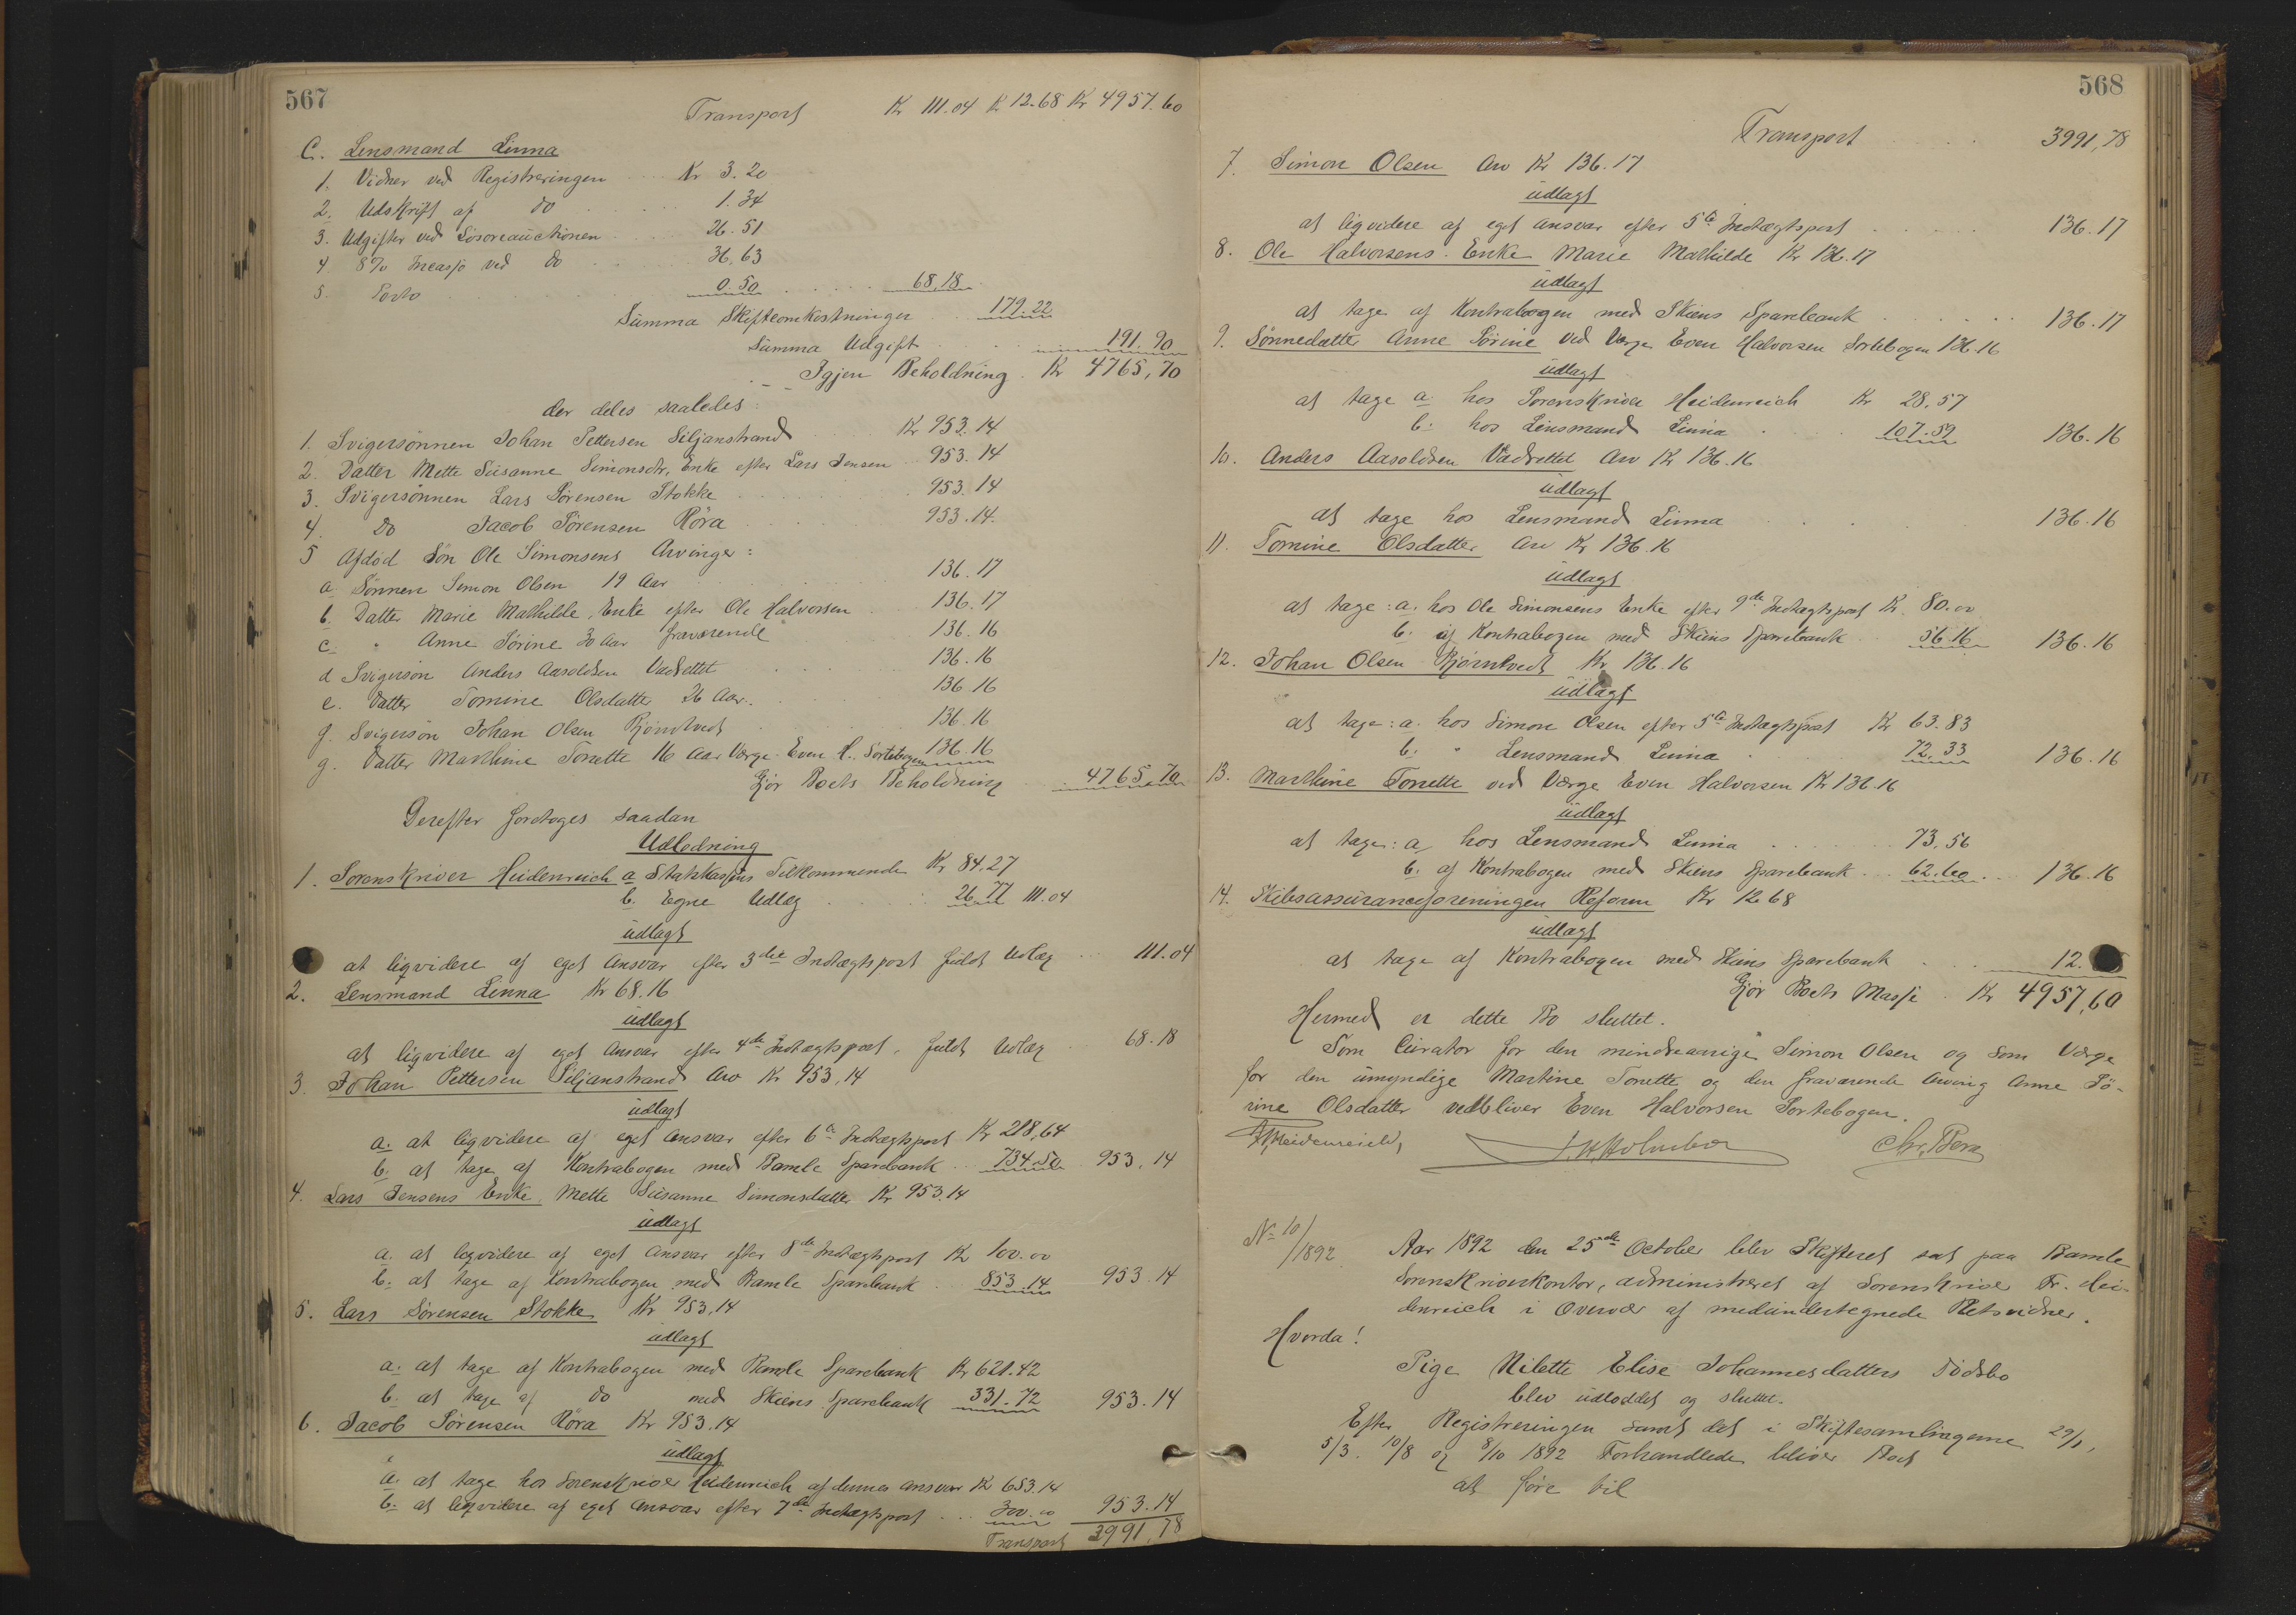 567
Transport Kr 111.04 Kr 12.68 Kr 4957.60
C. Lensmand Linna
1. Vidner ved Registreringen Kr 3.20
2. Udskrift af do 1.34
3. Udgifter ved Lösöreauctionen 26.51
4 8% Incasso ved do 36,63
5. Porto 0.50 68,18
Summa Skifteomkostninger 179.22
Summa Udgift 191.90
Igjen Beholdning Kr 4765,70
der deles saaledes:
1. Svigersönnen Johan Pettersen Siljanstrand Kr 953.14
2. Datter Mette Susanne Simonsdtr, Enke efter Lars Jensen 953.14
3. Svigersönnen Lars Sörensen Stokke 953.14
4. do Jacob Sörensen Röra 953.14.
5 Afdöd Sön Ole Simonsens Arvinger:
a. Sönnen Simon Olsen 19 Aar 136.17
b. Datter Marie Mathilde, Enke efter Ole Halvorsen 136.17
c. " Anne Sörine 30 Aar fraværende 136.16
d Svigersön Anders Aasoldsen Vadrettet 136.16
e. Datter Tomine Olsdatter 26 Aar. 136.16
f. Svigersön Johan Olsen Bjørntvedt 136.16
g. Datter Marthine Tonette 16 Aar Værge Even H. Sortebogen 136.16
Gjör Boets Beholdning 4765,70
Derefter foretoges saadan
Udlodning
1. Sorenskriver Heidenreich a Statskassens Tilkommende Kr 84.27
b. Egne Udlæg 26.77 111.04
udlagt
at liqvidere af eget Ansvar efter 3die Indtægtspost fuldt Udlæg 111.04
2. Lensmand Linna Kr 68.16
udlagt
at liqvidere af eget Ansvar efter 4de Indtægtspost, fuldt Udlæg 68.18
3. Johan Pettersen Siljanstrand Arv Kr 953,14
udlagt
a. at liqvidere af eget Ansvar efter 6te Indtægtspost Kr 218,64
b. at tage af Kontrabogen med Bamle Sparebank 734.50 953,14
4. Lars Jensens Enke Mette Susanne Simonsdatter Kr 953.14
udlagt
a. at liqvidere af eget Ansvar efter 8de Indtægtspost Kr 100.00
b. at tage af Kontrabogen med Bamle Sparebank 853.14 953.14
5. Lars Sörensen Stokke Kr 953,14
udlagt
a. at tage af Kontrabogen med Bamle Sparebank Kr 621.42
b. at tage af do med Skiens Sparebank 331.72 953.14
6. Jacob Sörensen Röra Kr 953.14
udlagt
a. at tage hos Sorenskriver Heidenreich af dennes Ansvar Kr 653.14
b. at liqvidere af eget Ansvar efter 7de Indtægtspost 300.00 953.14
Transport 3991,78
568
Transport 3991,78
7. Simon Olsen Arv Kr 136.17
udlagt
at liqvidere af eget Ansvar efter 5te Indtægtspost 136.17
8. Ole Halvorsens Enke Marie Mathilde Kr 136.17
udlagt
at tage af Kontrabogen med Skiens Sparebank 136.17
9. Sönnedatter Anne Sörine ved Værge Even Halvorsen Sortebogen 136.16
udlagt
at tage a hos Sorenskriver Heidenreich Kr 28,57
b. hos Lensmand Linna 107.59 136.16
10. Anders Aasoldsen Vadrettet Arv Kr 136.16
udlagt
at tage hos Lensmand Linna 136.16
11. Tomine Olsdatter Arv Kr 136.16
udlagt
at tage: a. hos Ole Simonsens Enke efter 9de Indtægtspost Kr. 80.00
b. af Kontrabogen med Skiens Sparebank 56.16 136.16
12. Johan Olsen Bjørntvedt Kr 136.16
udlagt
at tage: a. hos Simon Olsen efter 5te Indtægtspost Kr 63.83
b. " Lensmand Linna 72.33 136.16
13. Marthine Tonette ved Værge Even Halvorsen Kr 136.16
udlagt
at tage: a, hos Lensmand Linna 73,56
b. af Kontrabogen med Skiens Sparebank 62.60 136.16
14. Skibsassuranceforeningen Reform Kr 12.68
udlagt
at tage af Kontrabogen med Skiens Sparebank 12.
Gjör Boets Masse Kr 4957,60
Hermed er dette Bo sluttet.
Som Curator for den mindreaarige Simon Olsen og som Værge
for den umyndige Martine Tonette og den fraværende Arving Anne Sö-
rine Olsdatter vedbliver Even Halvorsen Sortebogen.
Fr Heidenreich, Chr. Berg
No 10/1892 Aar 1892 den 25de October blev Skifteret sat paa Bamle
Sorenskriverkontor, administreret af Sorenskriver Fr. Hei-
denreich i Overvær af medundertegnede Retsvidner.
Hvorda!
Pige Nilette Elise Johannesdatters Dödsbo
blev udloddet og sluttet.
Efter Registreringen samt det i Skiftesamlingerne 29/1,
5/3. 10/8 og 8/10 1892 Forhandlede bliver Boet
at före til